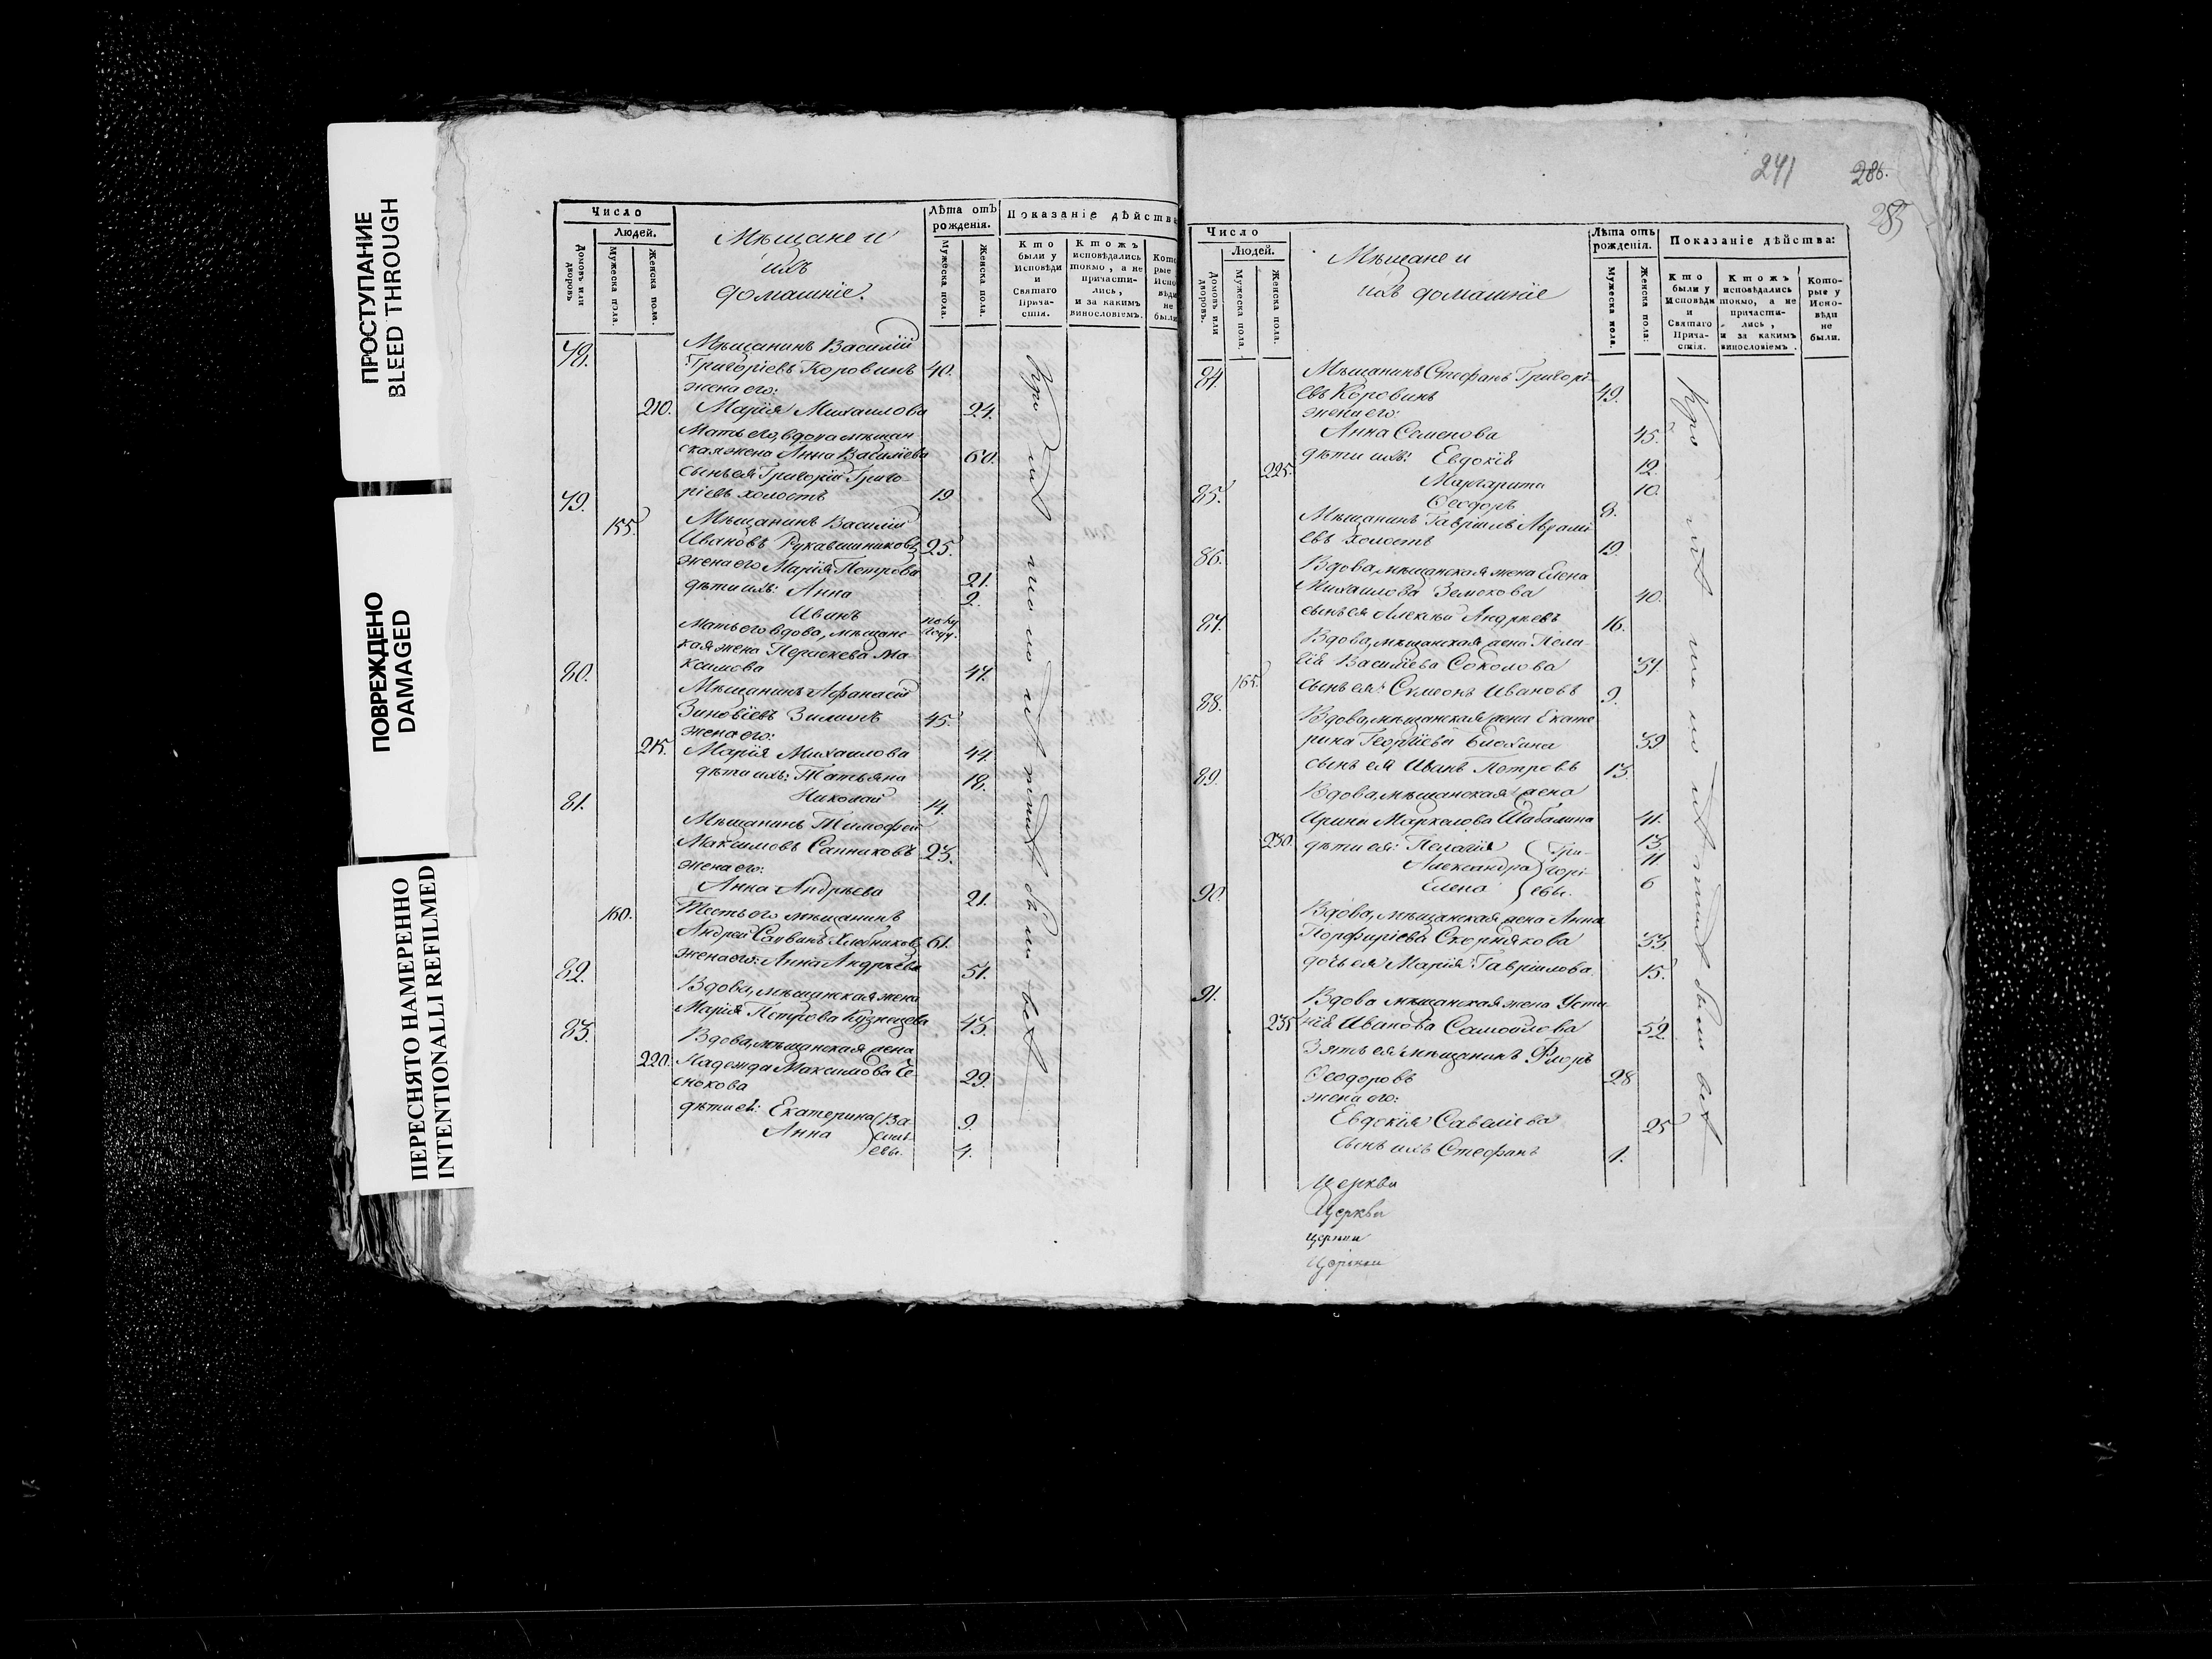 ПРОСТУПАНИЕ
BLEED THROUGH
ПОВРЕЖДЕНО
DAMAGED
ПЕРЕСНЯТО НАМЕРЕННО
INTENTIONALLI REFILMED
Число
Людей.
Домовъ или дворовъ
Мужеска пола.
Женска пола.
Мѣщане и
ихъ
домашніе.
Лѣта отъ рожденія.
Мужеска пола.
Женска пола.
Показаніе дѣйства
Кто были у Исповѣди и Святаго Прича-стія.
Ктожъ исповѣдались токмо, а не причасти-лись, и за какимъ винословіемъ.
Кото рые Испо вѣди не были
78. Мѣщанинъ Василій
Григоріевъ Коровинъ 40.
жена его:
210. Марія Михаилова 24.
Мать его, вдова мѣщан
ская жена Анна Васильева 60.
сынъ ея Григорій Григо-
ріевъ холостъ 19
79.
155. Мѣщанинъ Василій
Ивановъ Рукавишниковъ 25.
жена его Марія Петрова 21.
дѣти ихъ: Анна 2.
Иванъ полу году.
Мать его вдова, мѣщанс-
кая жена Параскева Ма-
ксимова 47.
80. Мѣщанинъ Афанасій
Зиновіевъ Зиминъ 45.
жена его:
215. Марія Михаилова 44.
дѣти ихъ: Татьяна 18.
Николай 14.
81. Мѣщанинъ Тимофей
Максимовъ Санниковъ 23.
жена его:
Анна Андрѣева 21.
160. Тесть его мѣщанинъ
Андрей Саввинъ Хлебниковъ 61.
жена его: Анна Андрѣева 51.
82. Вдова, мѣщанская жена
Марія Петрова Кузнецова 43.
83. Вдова, мѣщанская жена
220. Надежда Максимова Че-
снокова 29.
дѣти ей: Екатерина Ва- 9.
Анна силь-
евы. 4.
241 286.
285
Число
Людей.
Домовъ или дворовъ.
Мужеска пола.
Женска пола.
Мѣщане и
ихъ домашніе
Лѣта отъ рожденія.
Мужеска пола.
Женска пола:
Показаніе дѣйства:
Кто были у Исповѣди и Святаго Прича-стія.
Ктожъ исповѣдались токмо, а не причасти-лись, и за какимъ винословіемъ.
Кото-рые у Испо-вѣди не были.
84. Мѣщанинъ Стефанъ Григорі-
евъ Коровинъ 49.
жена его:
Анна Семенова 45.
дѣти ихъ: Евдокія 12.
225. Маргарита 10.
Ѳеодоръ 8.
85. Мѣщанинъ Гавріилъ Аврамі-
евъ холостъ 19.
86. Вдова, мѣщанская жена Елена
Михаилова 40.
сынъ ея Алексѣй Андрѣевъ 16.
87. Вдова, мѣщанская жена Пела-
гія Василіева Соколова 37.
165. сынъ ея: Сумеонъ Ивановъ 9.
88. Вдова, мѣщанская жена Екате
рина Георгіева 39
сынъ ея Иванъ Петровъ 13.
89. Вдова, мѣщанская жена
Ирина Маркелова Шабалина 41.
230. дѣти ея: Пелагія Гри- 13
Александра горі- 11
Елена евы. 6
90. Вдова, мѣщанская жена Анна
Порфиріева Скорнякова 33
дочь ея Марія Гавріилова 15.
91. Вдова мѣщанская жена Усти
235 нія Иванова Самойлова 52.
Зять ея мѣщанинъ Флоръ
Ѳеодоровъ 28
жена его:
Евдокія Савеліева 25
сынъ ихъ Стефанъ 1.
Церкви
Церкви